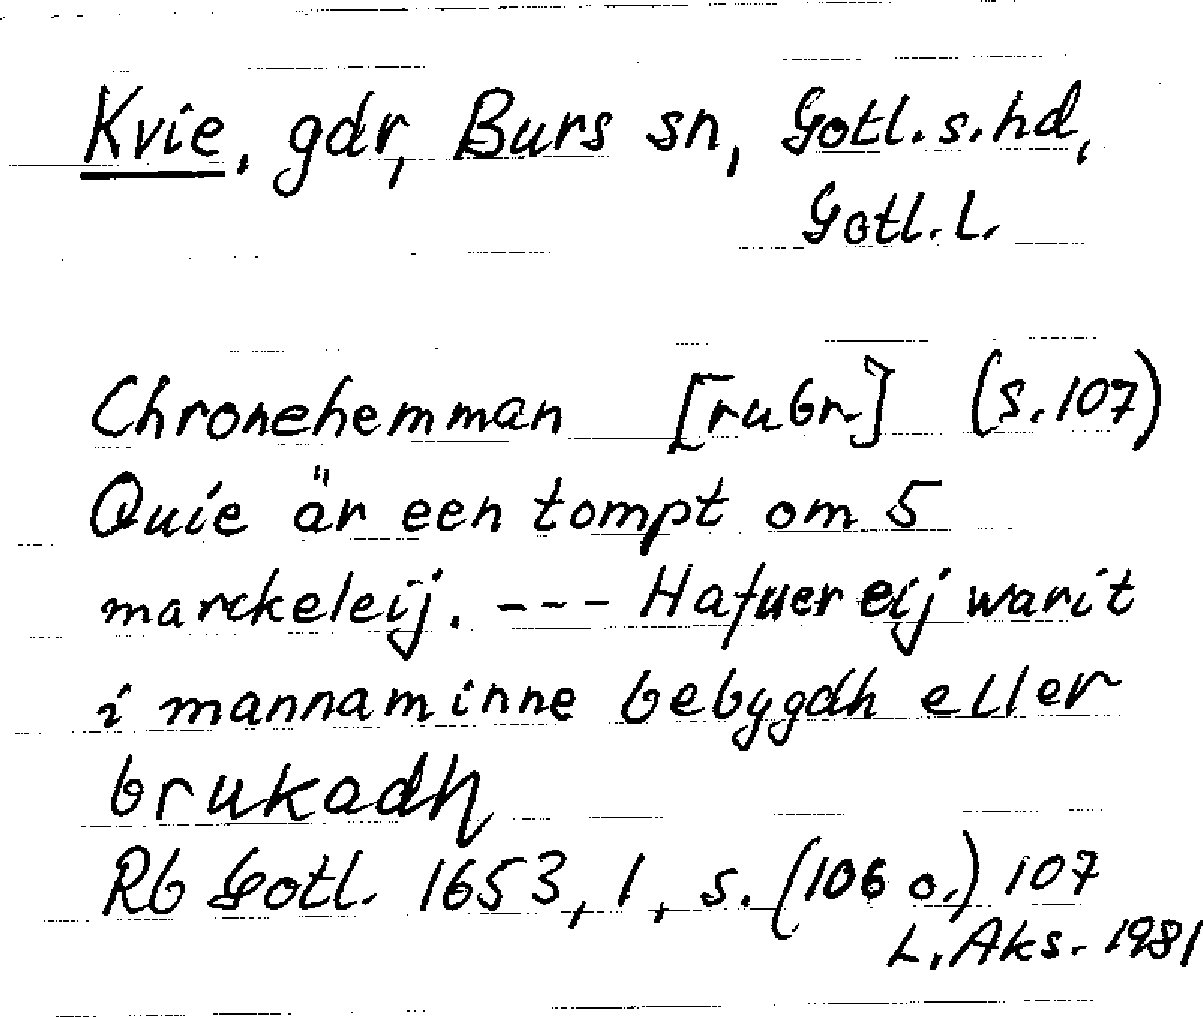 Kvie, gdr, Burs sn, Gotl. s. hd,
Gotl. l.
Chronehemman [rubr] (s. 107)
Quie är een tompt om 5
marckeleij. --- Hafuer eij warit
i mannaminne bebygdh eller
brukadh
Rb Gotl. 1653, 1, s. (106 o.) 107
L. Aks. 1981